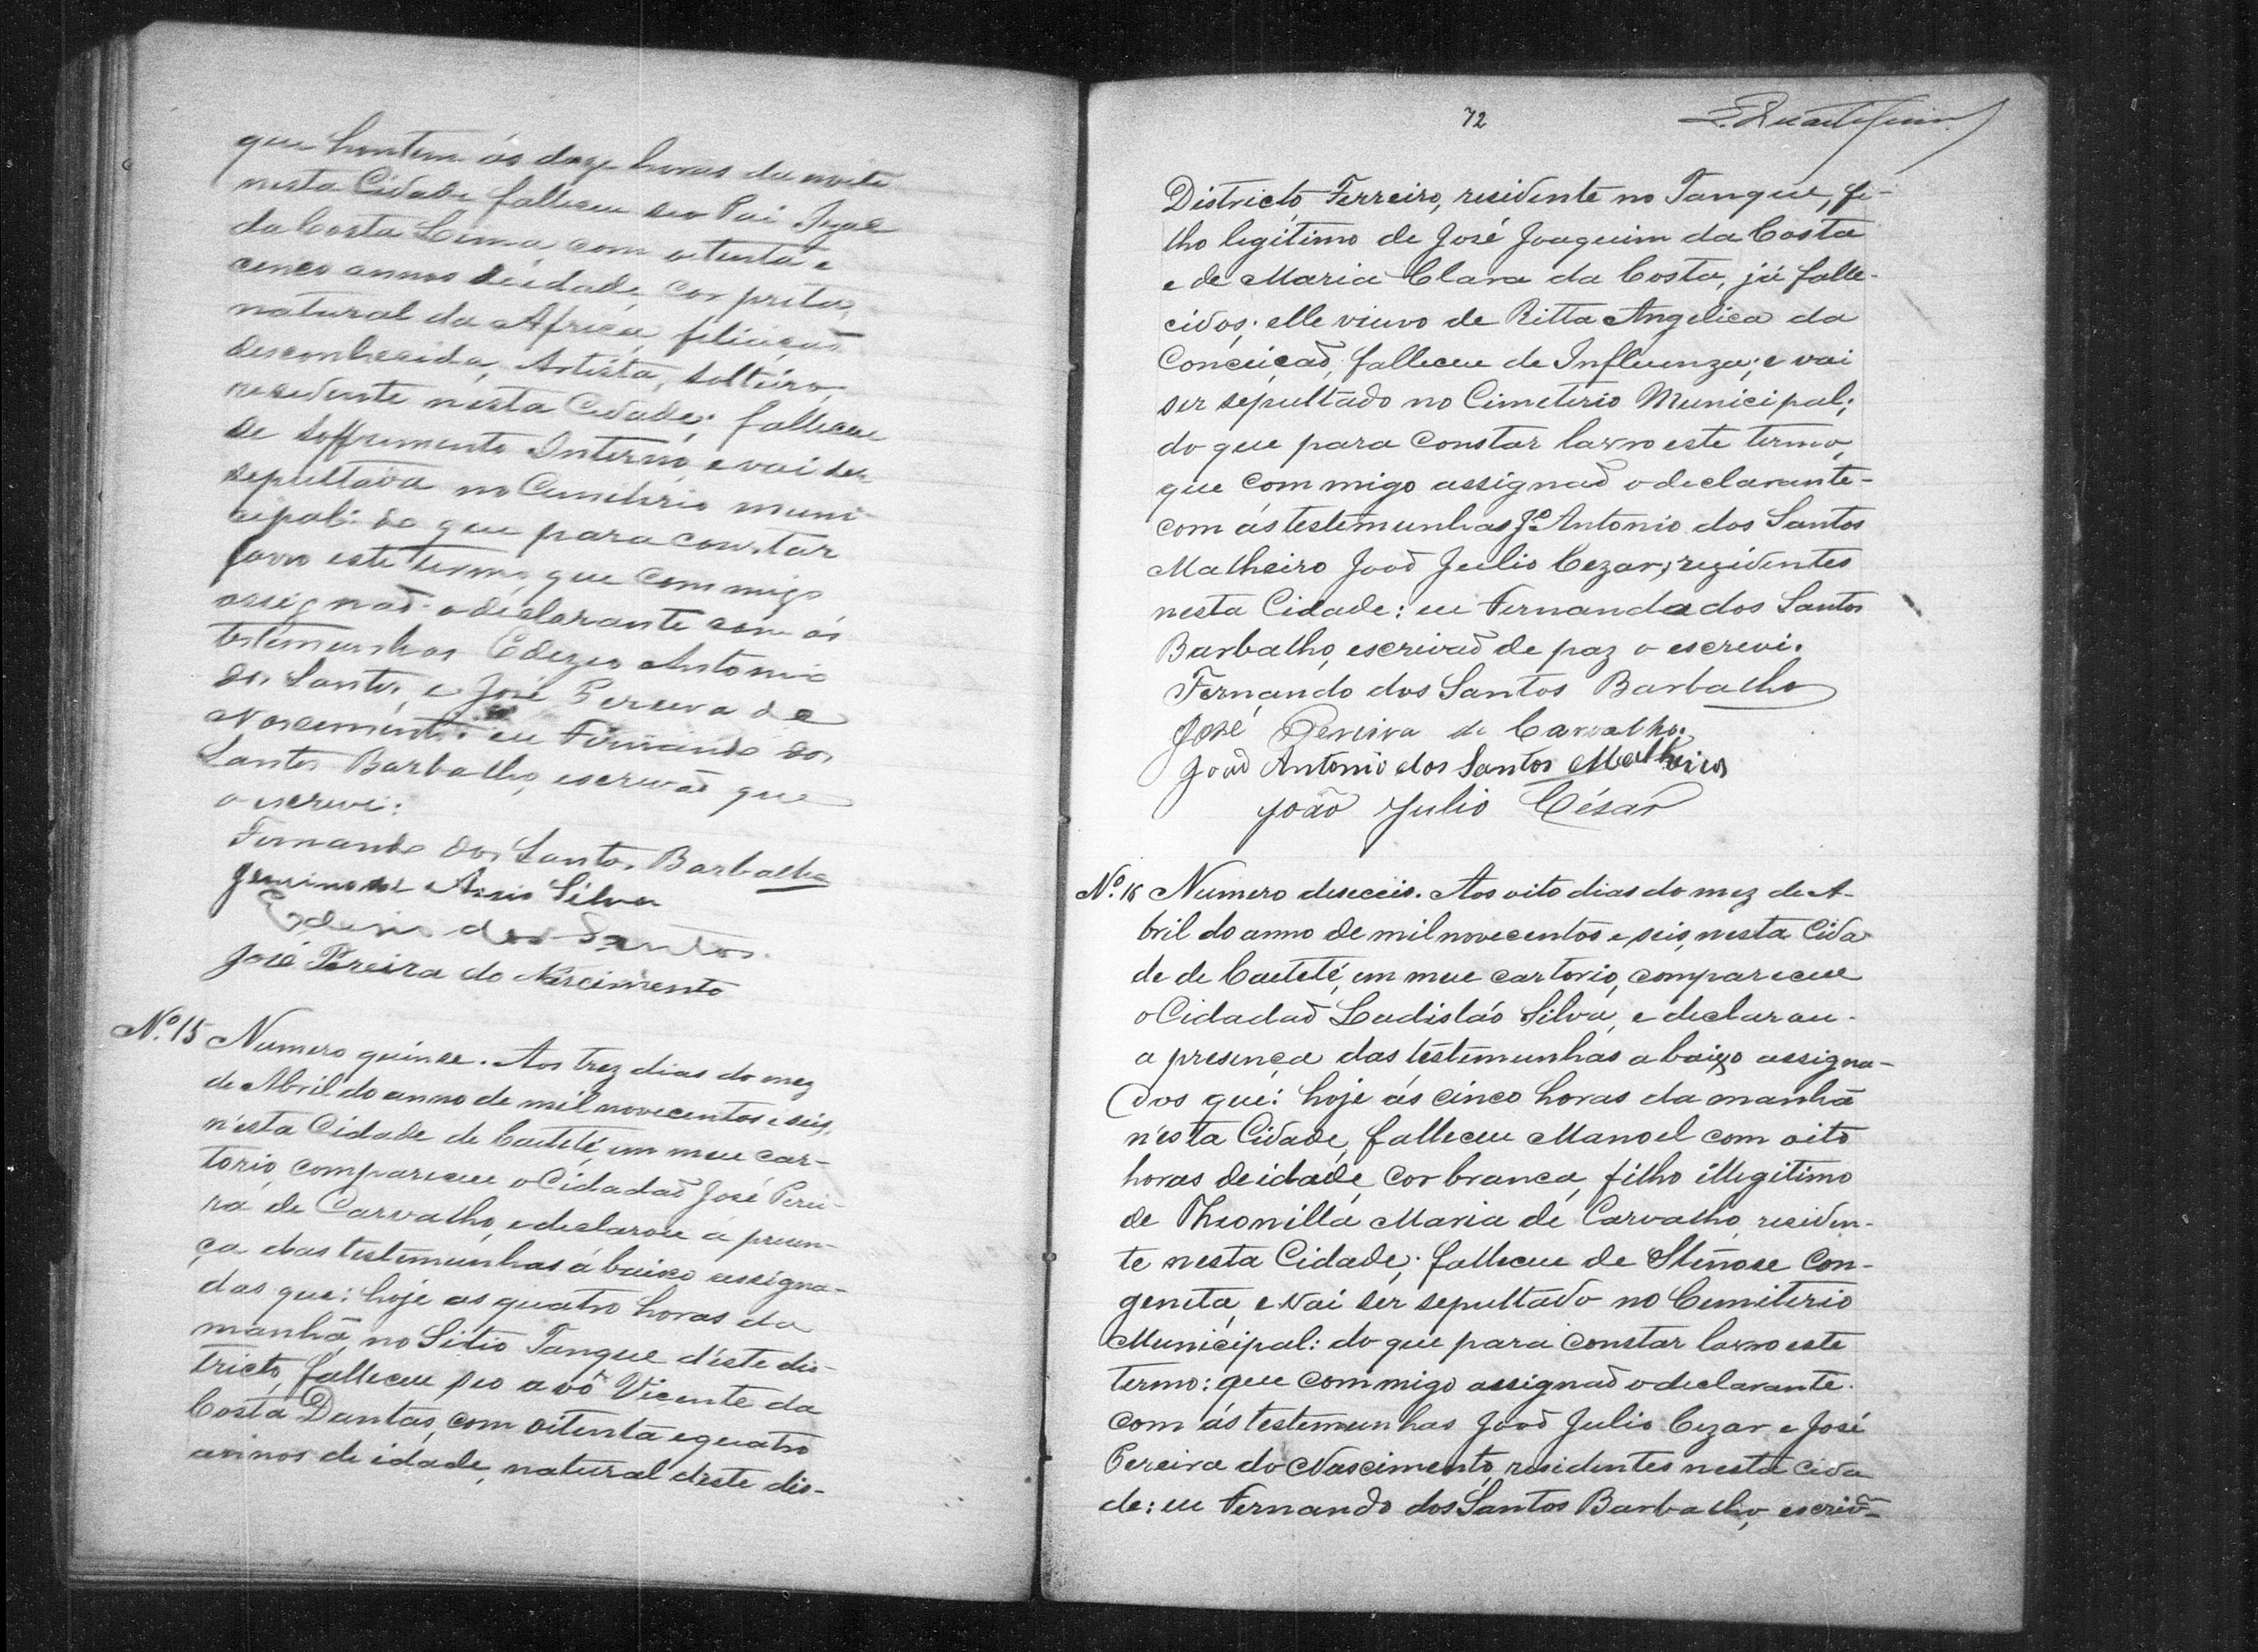 que hontem ás doze horas da noite
nesta Cidade falleceu seu Pai
da Costa Lima, com oitenta e
cinco annos de idade, cor preta,
natural da Africa, filiação
desconhecida, Artista, solteiro,
residente nesta Cidade; falleceu
de soffrimento Interno, e vai ser
sepultado no Cemiterio muni-
cipal: do que para constar
lavro este termo, que commigo
assignaõ o declarante com ás
testemunhas Antonio
dos Santos, e José Pereira do
Nascimento: eu Fernando dos
Santos Barbalho, escrivaõ que
o escrevi:
Fernando dos Santos Barbalho
de Assis Silva
dos Santos.
José Pereira do Nascimento
Nº. 15 Numero quinse. Aos trez dias do mez
de Abril do anno de mil novecentos e seis,
n'esta Cidade de Caeteté, em meu car-
torio, compareceu o Cidadaõ José Perei-
ra de Carvalho, e declarou a presen-
ça das testemunhas á baixo assigna-
das que: hoje as quatro horas da
manhã, no Sitio Tanque d'este dis-
tricto, falleceu seo avô Vicente da
Costa Dantas, com oitenta e quatro
annos de idade, natural d'este dis-
72
Districto, Ferreiro, residente no Tanque, fi-
lho legitimo de José Joaquim da Costa
e de Maria Clara da Costa, já falle-
cidos; elle viuvo de Ritta Angelica da
Conceiçaõ, falleceu de Influenza; e vai
ser sepultado no Cimeterio Municipal;
do que para constar lavro este termo,
que commigo assignaõ o declarante-
com ás testemunhas Jº. Antonio dos Santos
Malheiro Joaõ Julio Cezar, rezidentes
nesta Cidade: eu Fernanda dos Santos
Barbalho, escrivaõ de paz o escrevi.
Fernando dos Santos Barbalho
José Pereira de Carvalho.
Joaõ Antonio dos Santos Malheiros
João Julio César
Nº. 16 Numero deseceis. Aos oito dias do mez de A-
bril do anno de mil novecentos e seis, nesta Cida-
de de Caeteté, em meu cartorio, compareceu
o Cidadaõ Ladisláo Silva, e declarou-
a presença das testemunhas abaixo assigna-
dos que: hoje ás cinco horas da manhã
n'esta Cidade, falleceu Manoel com oito
horas de idade, cor branca, filho illegitimo
de Theonilla Maria de Carvalho, residen-
te nesta Cidade; falleceu de Stenose Con-
genita, e vai ser sepultado no Cemiterio
Municipal: do que para constar lavro este
termo: que commigo assignaõ o declarante.
com ás testemunhas Joaõ Julio Cezar e José
Pereira do Nascimento, residentes nesta cida
de: eu Fernando dos Santos Barbalho, escriv̄-